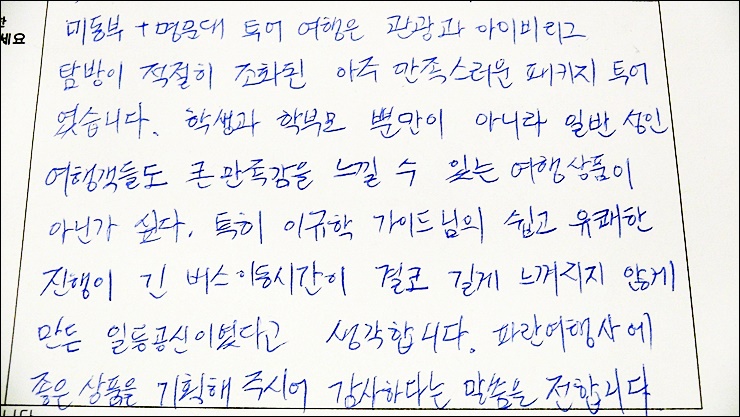 한
세요
미동부 + 명문대 투어 여행은 관광과 아이비리그
탐방이 적절히 조화된 아주 만족스러운 패키지 투어
였습니다. 학생과 학부모 뿐만이 아니라 일반 성인
여행객들도 큰 만족감을 느낄 수 있는 여행상품이
아닌가 싶다. 특히 이규학 가이드님의 쉽고 유쾌한
진행이 긴 버스 이동시간이 결코 길게 느껴지지 않게
만든 일등공신이였다고 생각합니다. 파란여행사에
좋은 상품을 기획해 주시어 감사하다는 말씀을 전합니다
니다